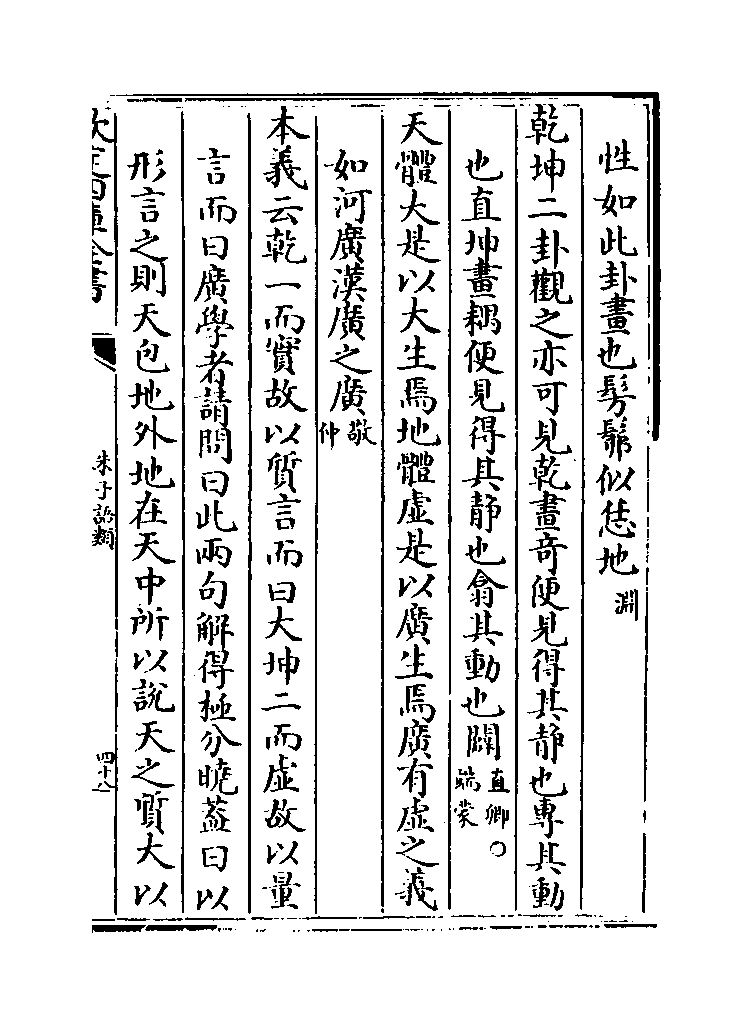 性如此卦畫也髣髴似恁地淵
乾坤二卦觀之亦可見乾畫奇便見得其静也專其動
也直坤畫耦便見得其静也翕其動也闢直卿○端蒙
天體大是以大生焉地體虛是以廣生焉廣有虛之義
如河廣漢廣之廣敬仲
本義云乾一而實故以質言而曰大坤二而虛故以量
言而曰廣學者請問曰此兩句解得極分曉葢曰以
形言之則天包地外地在天中所以說天之質大以
欽定四庫全書
朱子語類
四十八